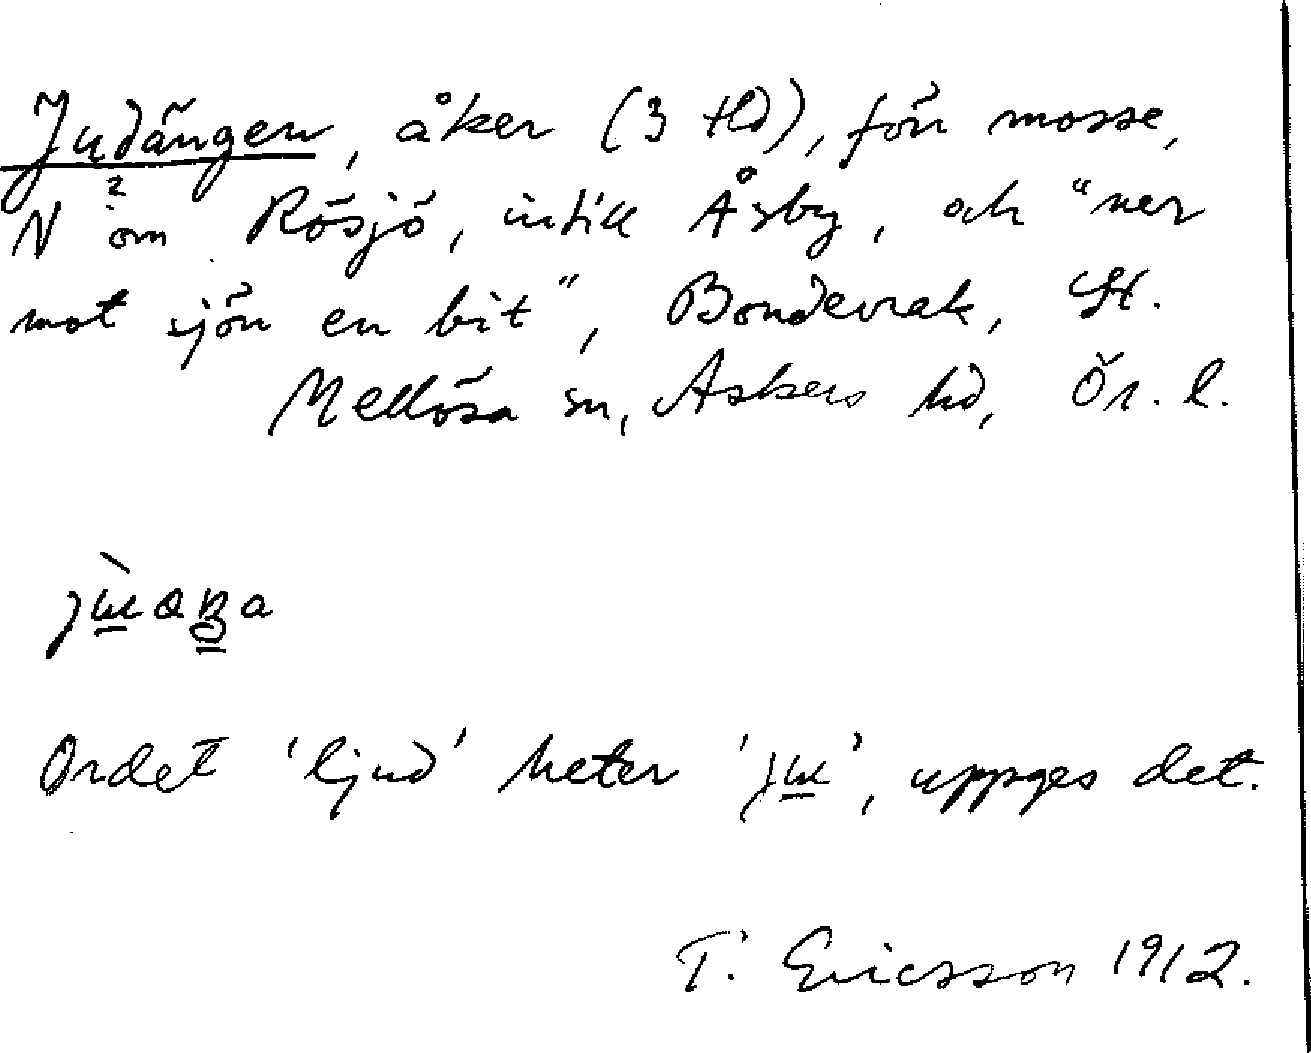 Judängen, åker (3 tld), förr mosse,
N ? om Rösjö, intill Åsby, och "ner
mot sjön en bit", Bondevrak, St.
Mellösa sn, Askers hd, Ör. l.
Ordet 'ljud' heter ' ', uppges det.
T. Ericsson 1912.